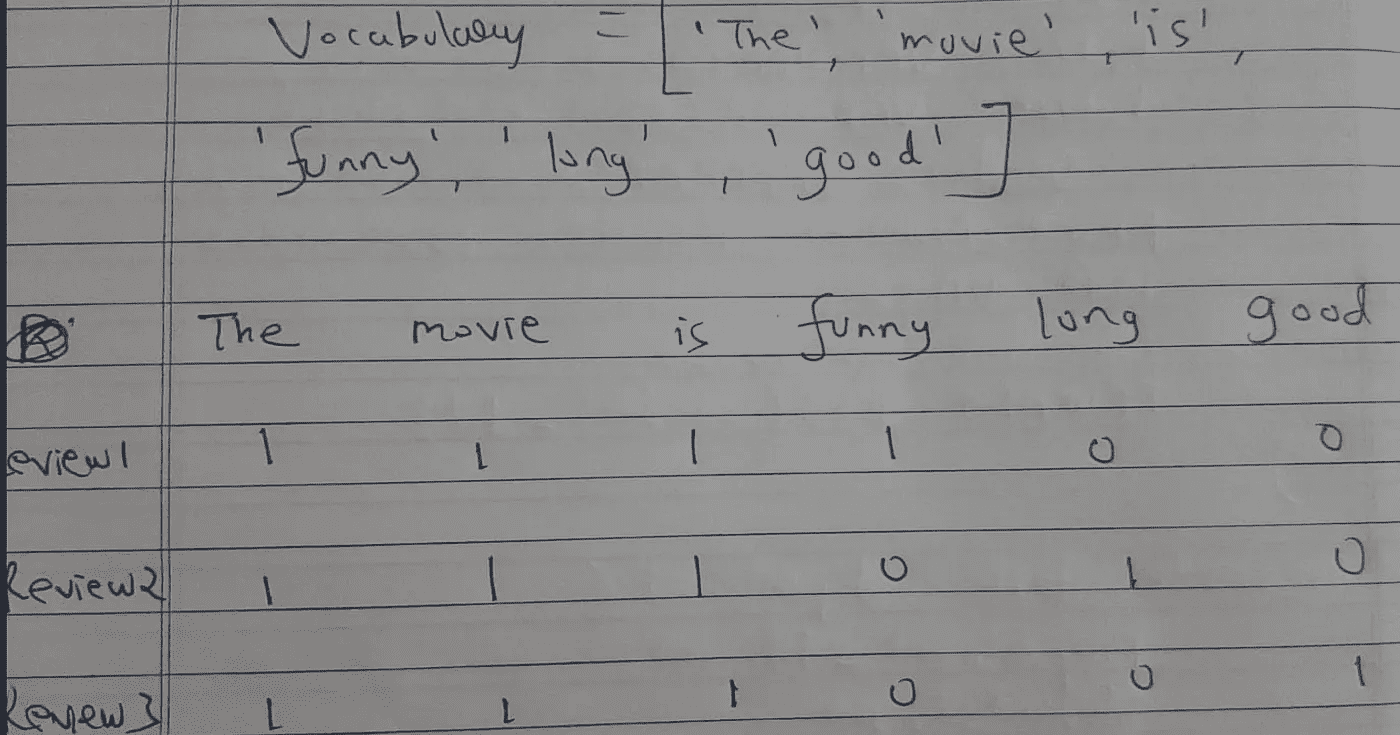 Vocabulary = ['The', 'movie', 'is',
'funny', 'long', 'good']
The movie is funny long good
eview1 1 1 1 1 0 0
Review2 1 1 1 0 1 0
Review3 1 1 1 0 0 1